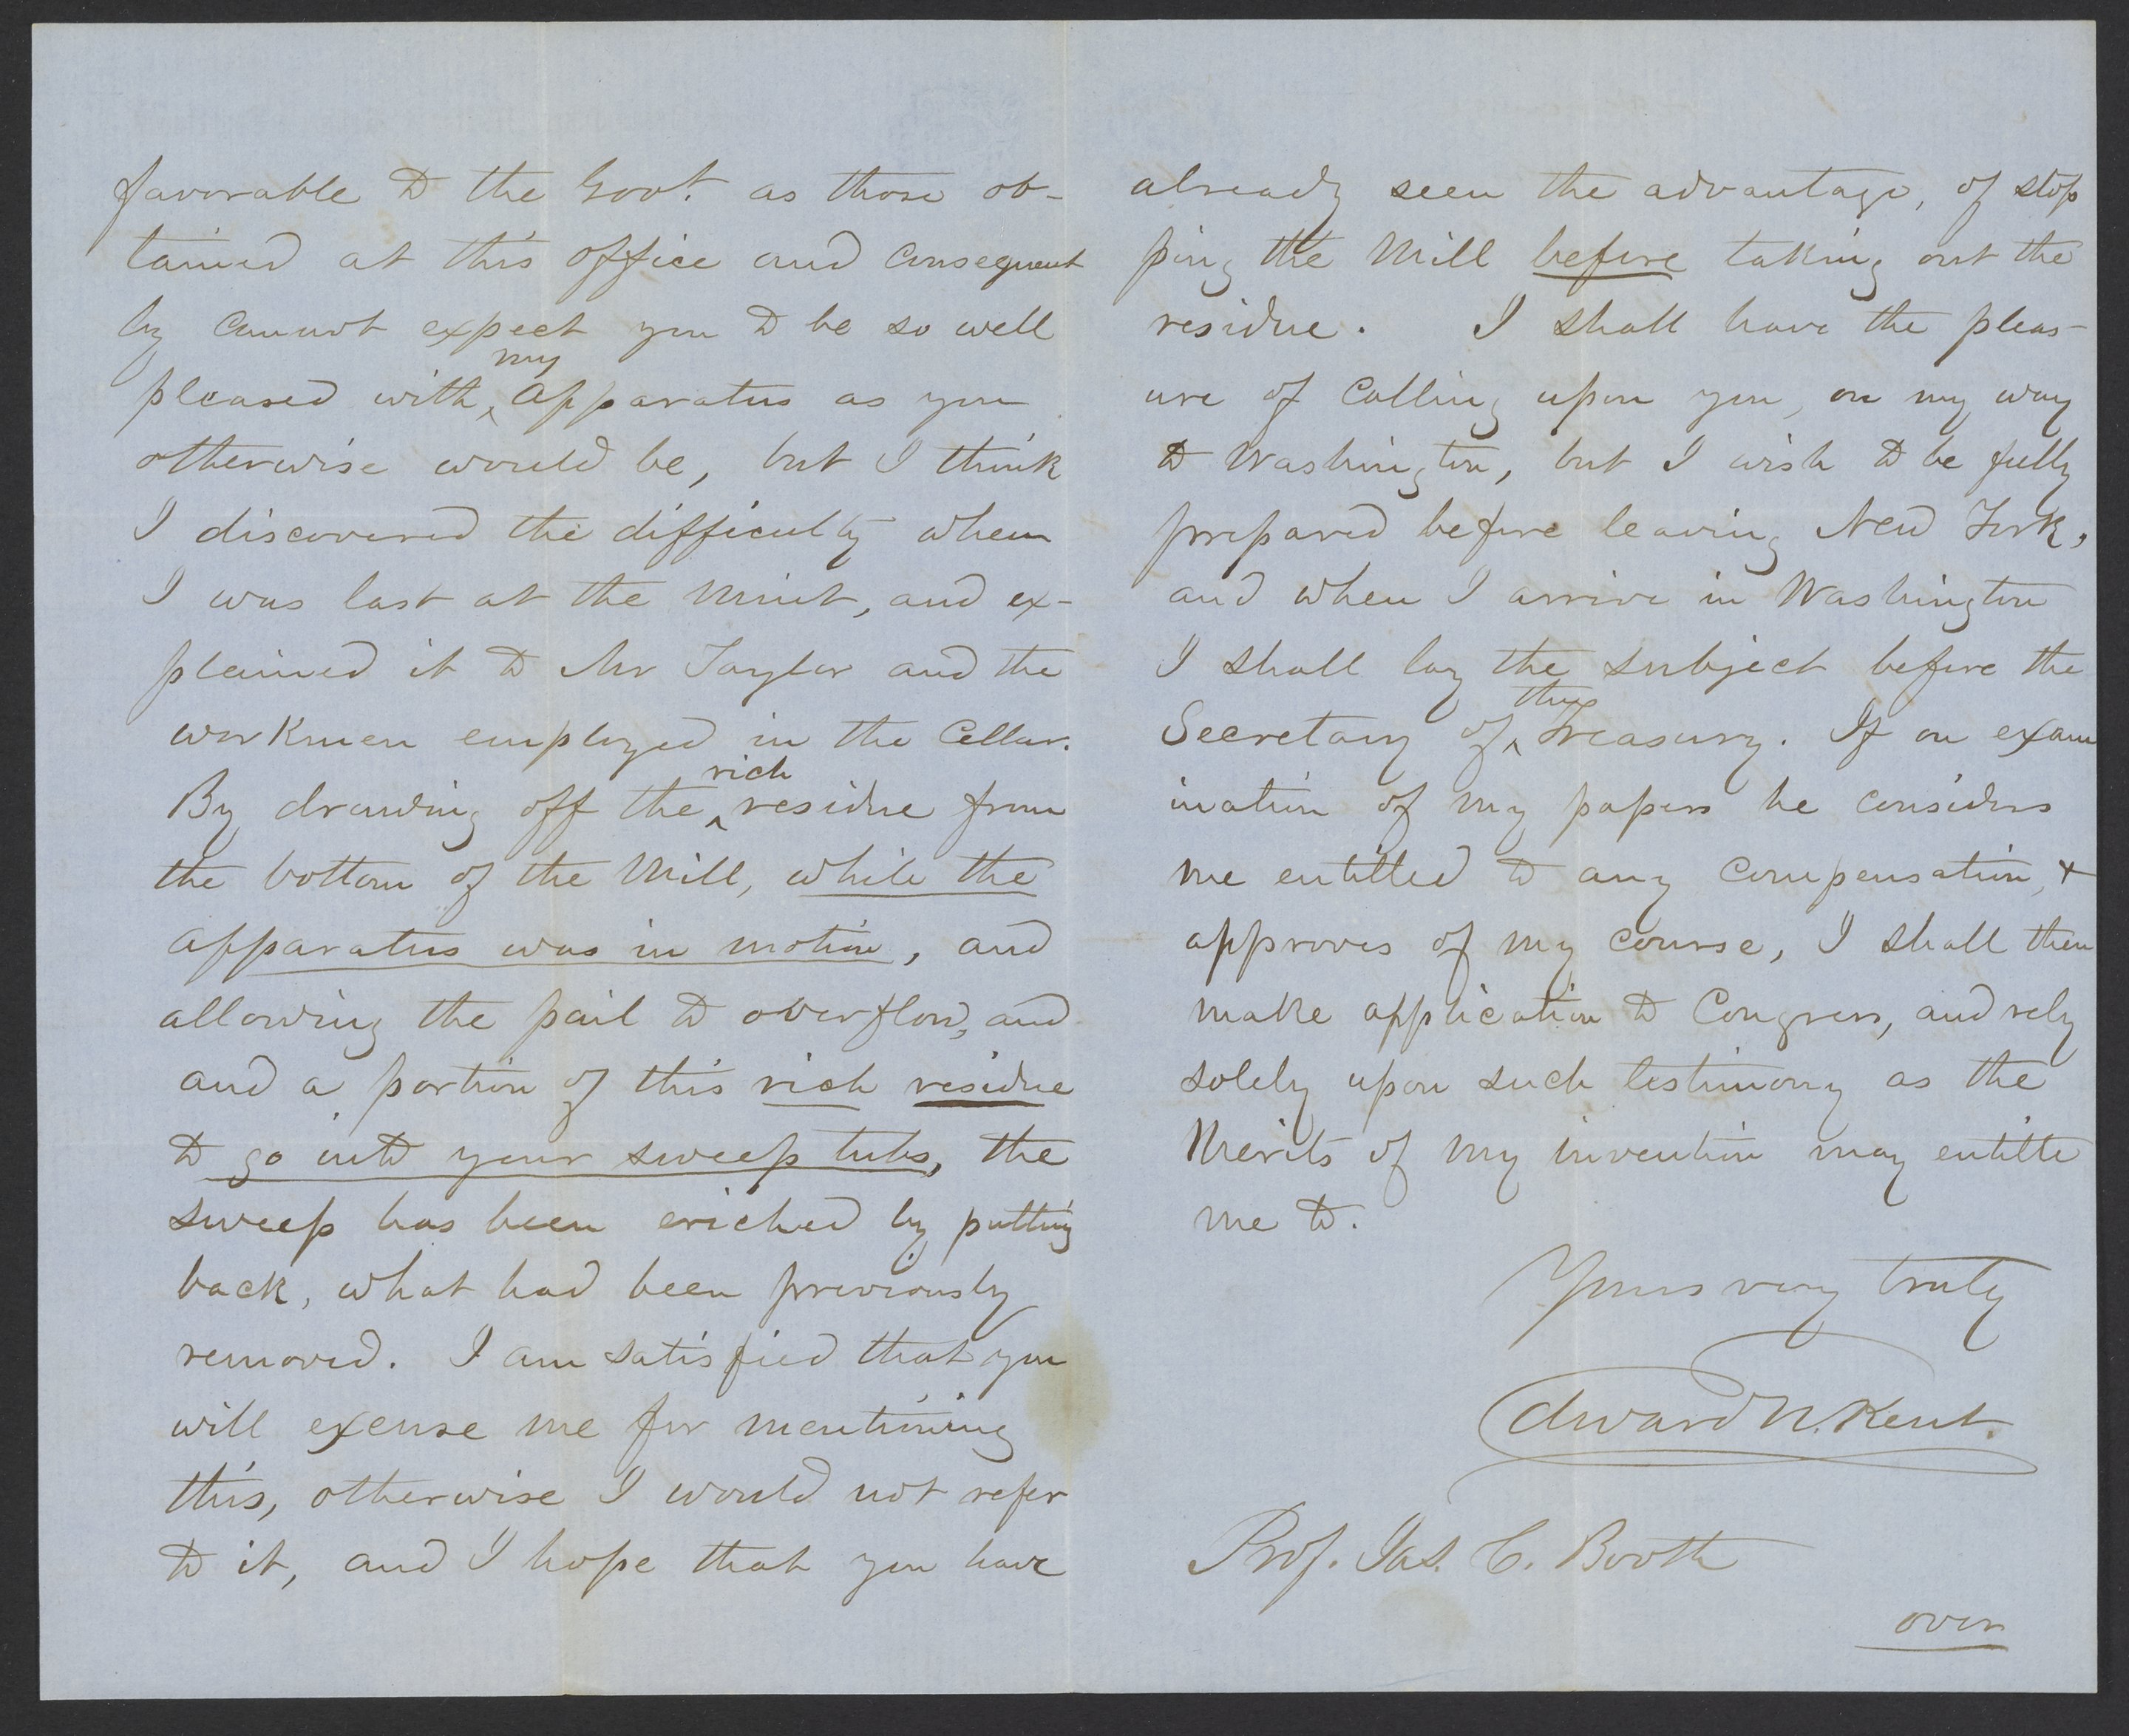 favorable to the Govt. as those ob-
tained at this office and consequent
ly cannot expect you to be so well
my
pleased with ‸ apparatus as you
otherwise would be, but I think
I discovered the difficulty when
I was last at the Mint, and ex-
plained it to Mr Taylor and the
workmen employed in the Cellar.
rich
By drawing off the ‸ residue from
the bottom of the Mill, while the
apparatus was in motion, and
allowing the pail to overflow, and
and a portion of this rich residue
to go into your sweep tubs, the
sweep has been eriched by putting
back, what had been previously
removed. I am satisfied that you
will excuse me for mentioning
this, otherwise I would not refer
to it, and I hope that you have
already seen the advantage, of stop
ping the Mill before taking out the
residue. I shall have the pleas-
ure of calling upon you, on my way
to Washington, but I wish to be fully
prepared before leaving New York,
and when I arrive in Washington
I shall lay the subject before the
the
Secretary of ‸ Treasury. If on exam
ination of my papers he considers
me entitled to any compensation, &
approves of my course, I shall then
make application to Congress, and rely
solely upon such testimony as the
Merits of my invention may entitle
me to.
Yours very truly
Edward N. Kent.
Prof. Jas. C. Booth
over